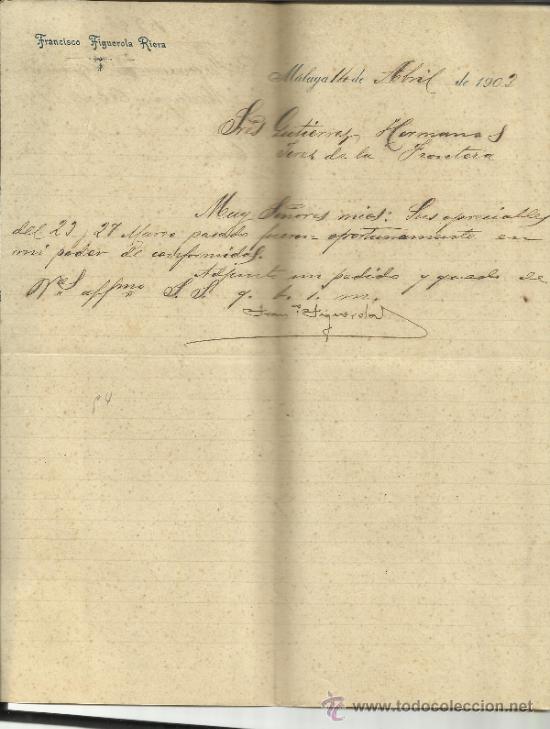 Francisco Figuerola Riera
Málaga 14 de Abril de 1902
Sres Gutiérrez Hermanos
Jerez de la Frontera
Muy Señores mios: Sus apreciables
del 23 y 27 Marzo pasado fueron oportunamente en
mi poder de conformidad.
Adjunto un pedido y quedo de
Vds affmo S. S. q. b. s. m.
Franco Figuerola
www.todocoleccion.net